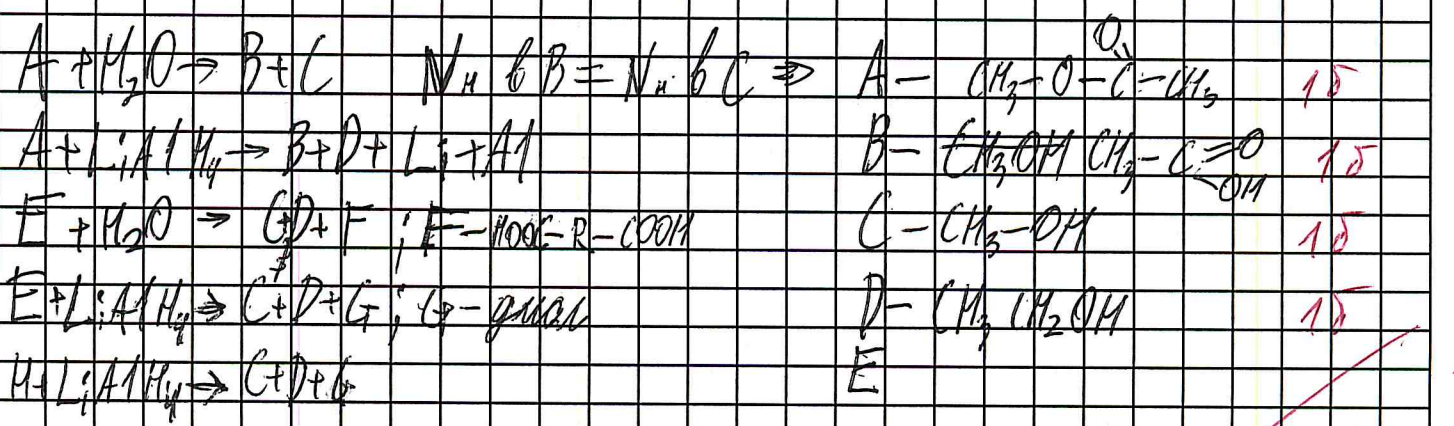 A + H₂O → B + C    Nн в B = Nн в C ⇒ A – CH₃ – O – C(=O) – CH₃    1б
A + LiAlH₄ → B + D + Li + Al    B – CH₃OH CH₃ – C(=O)OH    1б
E + H₂O → C + D + F ; F – HOOC – R – COOH    C – CH₃ – OH    1б
E + LiAlH₄ → C + D + G ; G – диол    D – CH₃CH₂OH    1б
H + LiAlH₄ → C + D + G    E